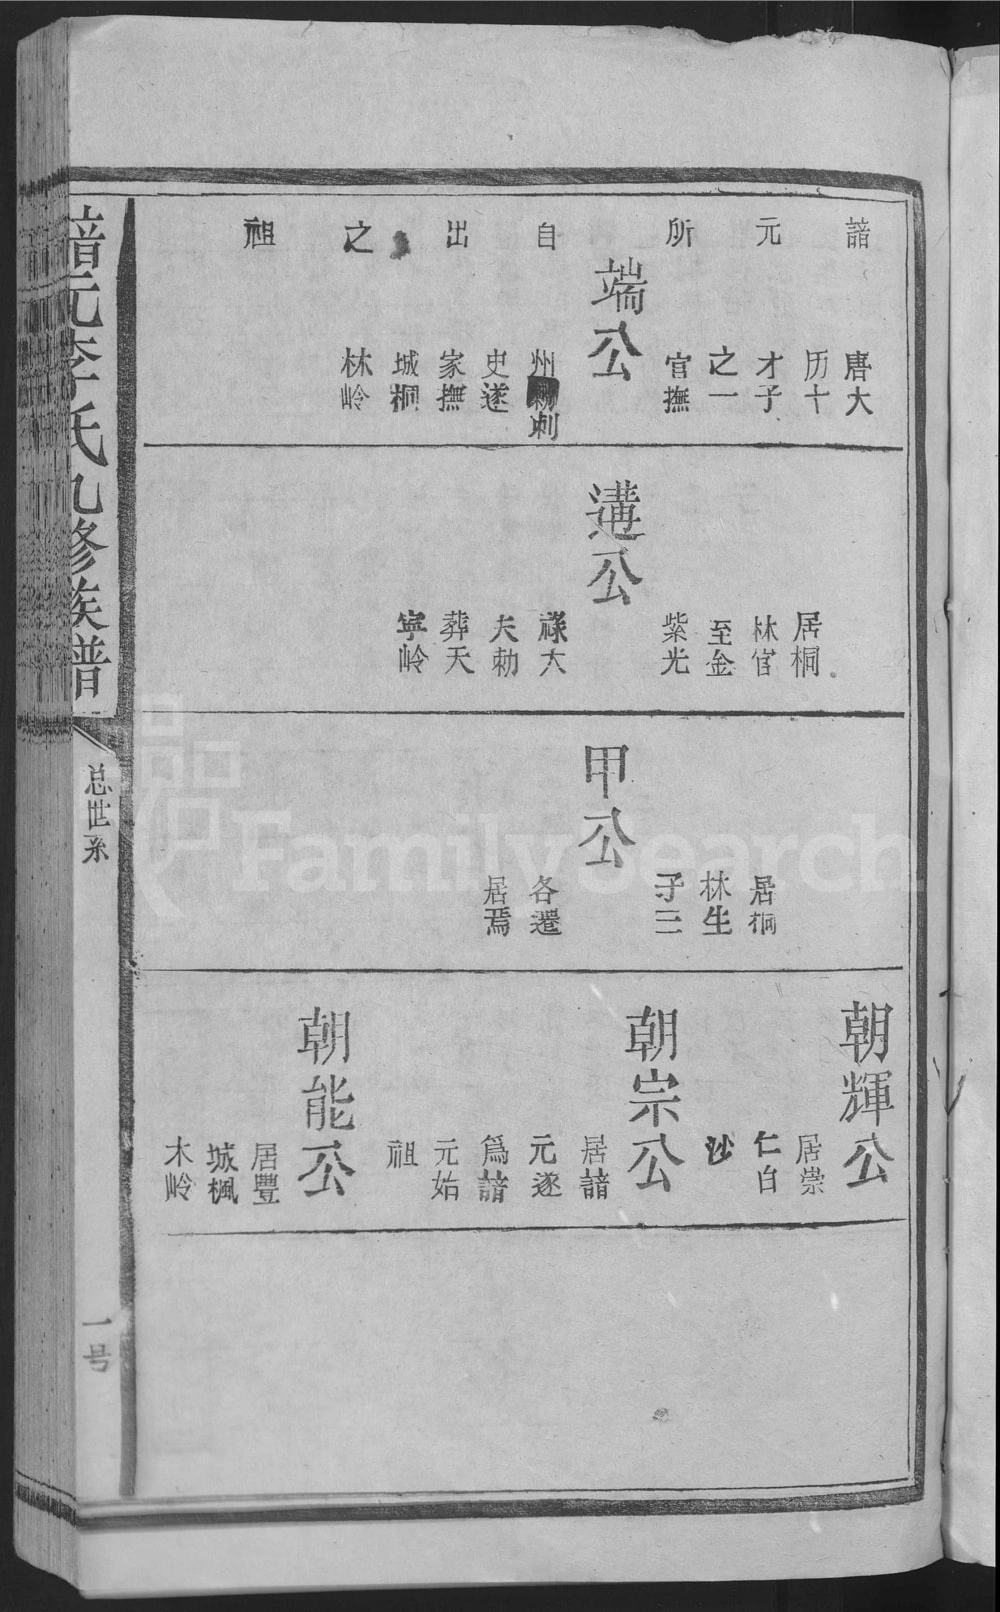 諳元所自出之祖
端公
唐大
历十
才子
之一
官撫
州刺
史遂
家撫
城桐
林岭
遘公
居桐
林官
至金
紫光
祿大
夫勅
葬天
寜岭
甲公
居桐
林生
子三
各遷
居焉
朝輝公
居崇
仁白
沙
朝宗公
居諳
元遂
爲諳
元始
祖
朝能公
居豐
城楓
木岭
諳元李氏九修族谱
总世系
一号
FamilySearch